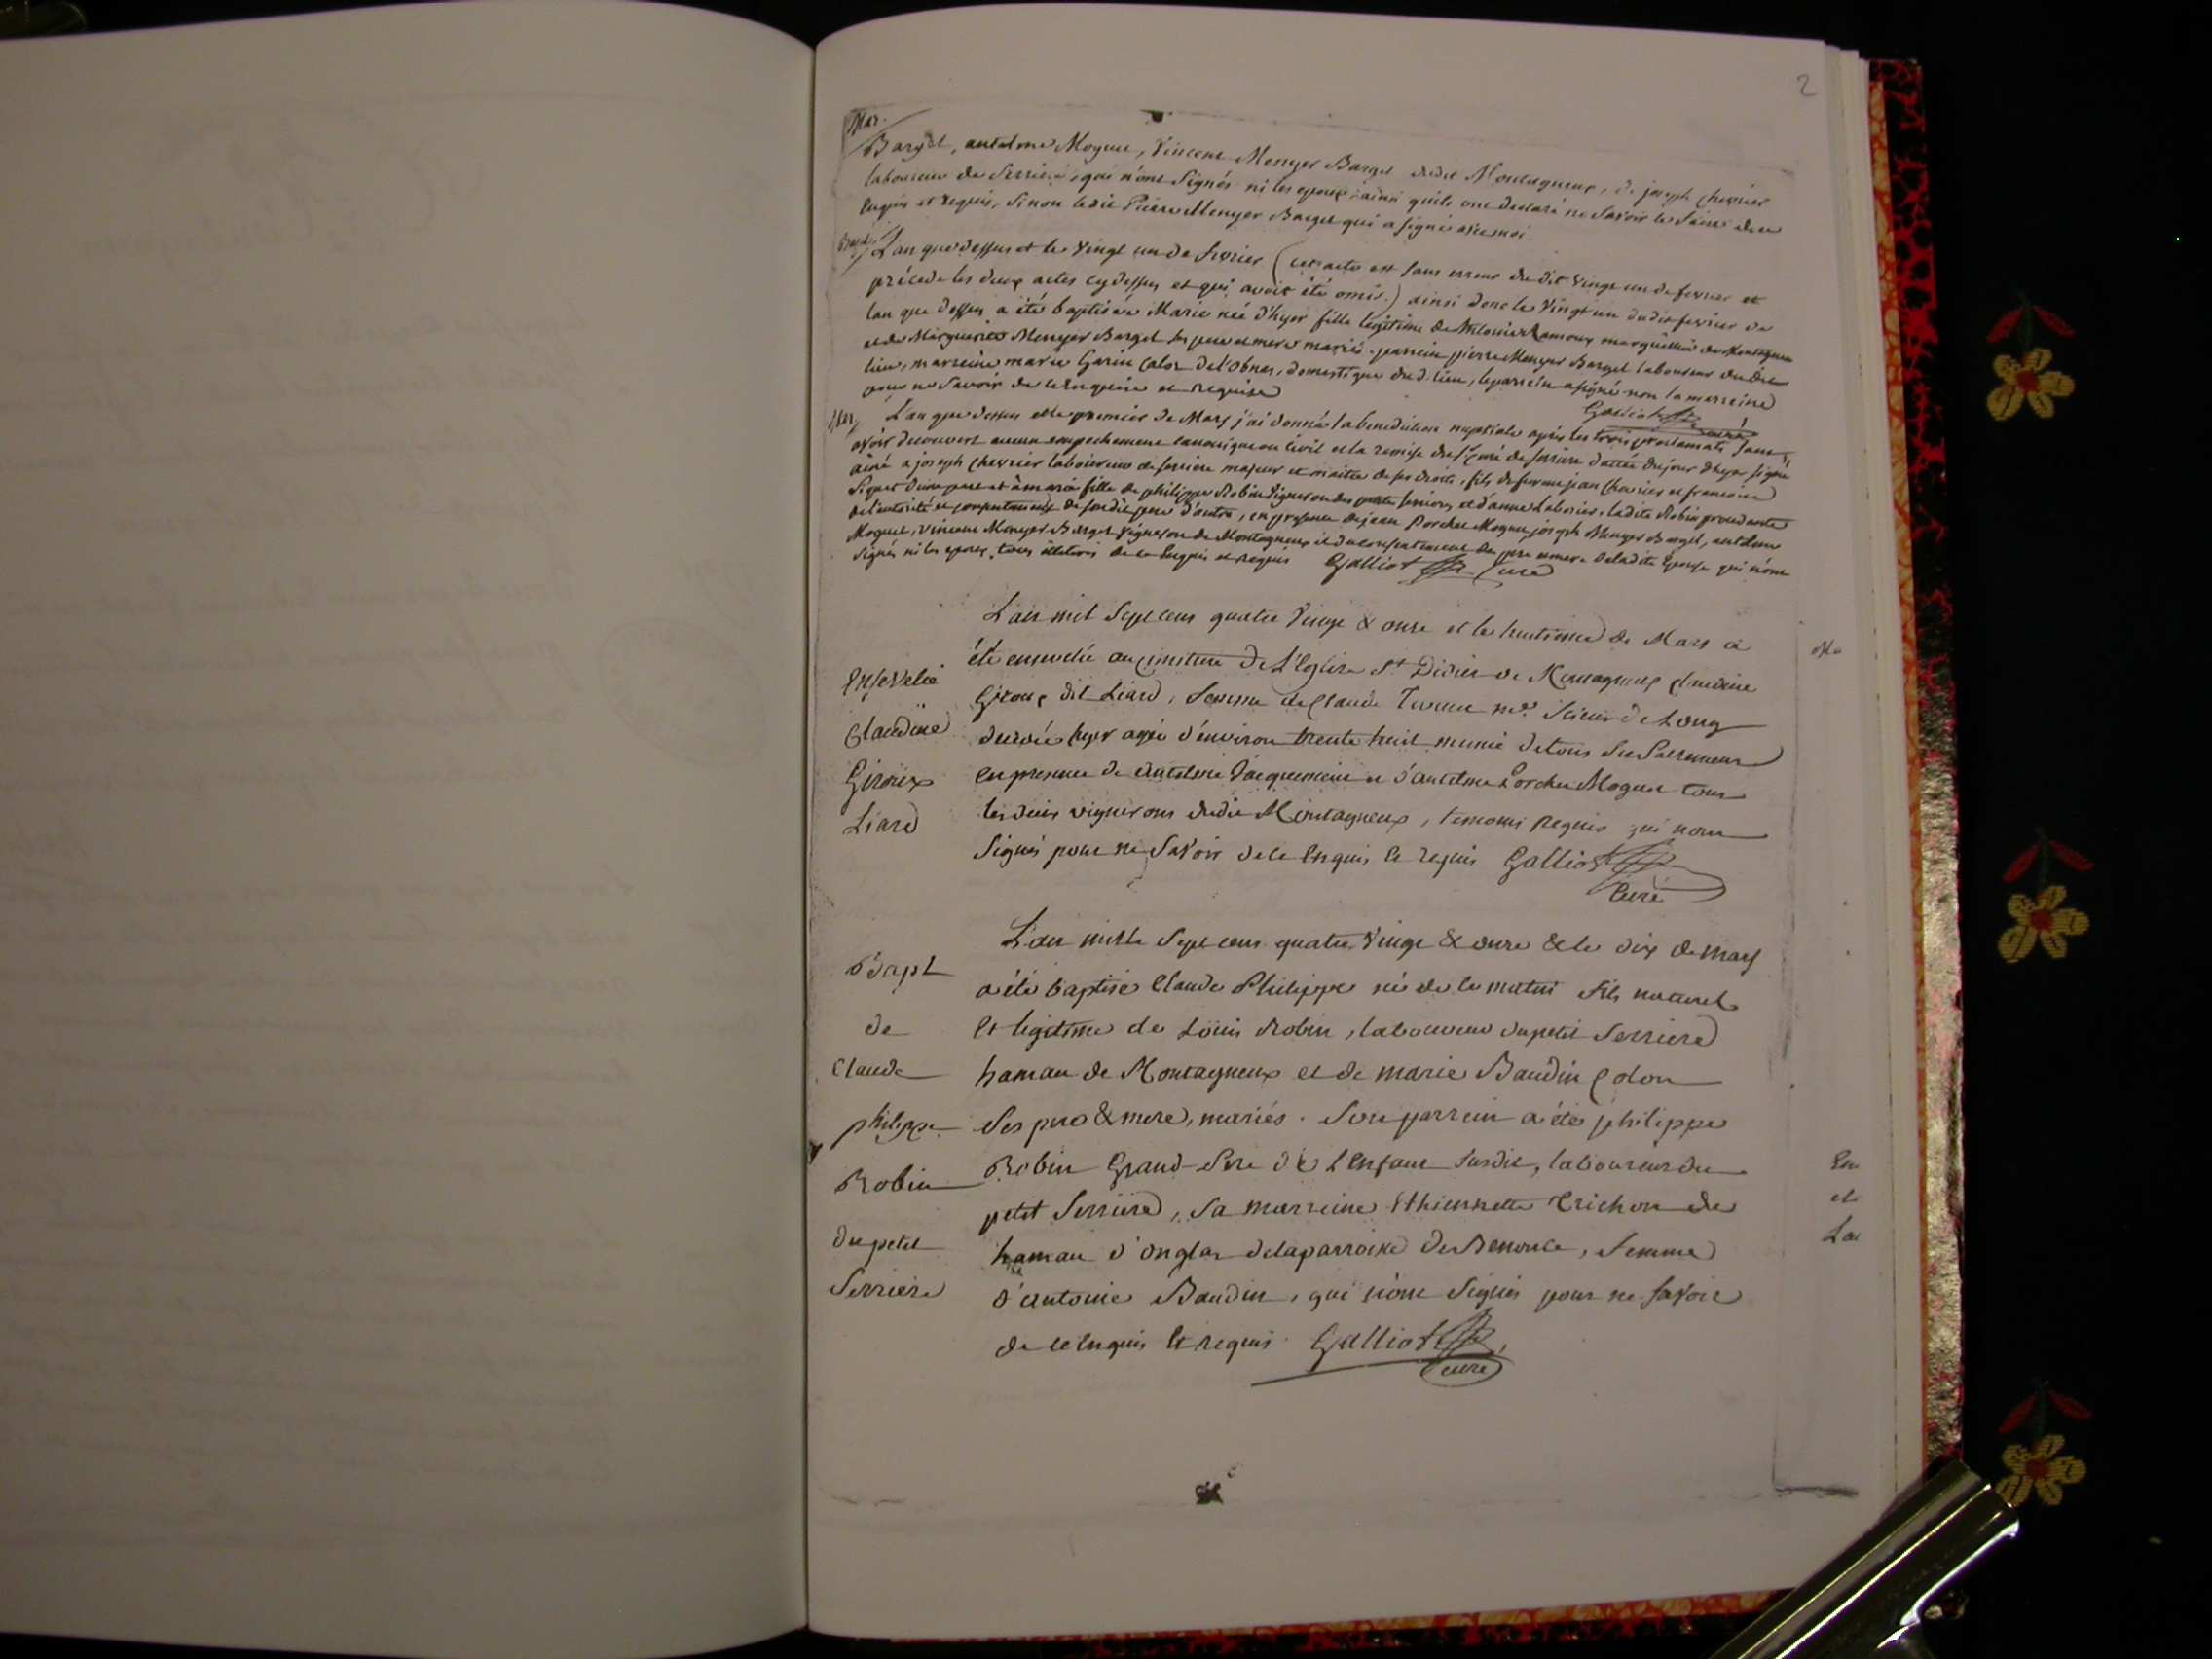 2
Mar.
Bargel, Moyne, Vincent Menyer Bargel dudit Montagneux, de joseph chevrier
laboureur de Serriere, qui n'ont signés ni les epoux ainsi quils ont declaré ne savoir le faire de ce
enquis et requis, sinon ledit Pierre Menyer Bargel qui a signé avec moi
L'an que dessus et le vingt un de fevrier (cet acte est sans erreur du dit vingt un de fevrier et
précede les deux actes cy dessus et qui avoit été omis.) ainsi donc le vingt un dudit fevrier de
lan que dessus a été baptisée Marie née d'hyer fille legitime de marguillier de Montagneux
et de Marguerite Menyer Bargel ses pere et mere mariés. parrein pierre Menyer Bargel laboureur dudit
lieu, marreine marie Garin domestique dud. lieu, le parrein a signé non la marreine
pour ne savoir de ce enquise et requise
Galliot curé
Mar.
L'an que dessus et le premier de Mars j'ai donné la benediction nuptiale apres les trois proclamats sans
avoir decouvert aucun empechement canonique ou civil et la remise du sr curé de serriere dattée du jour dhyer signé
a joseph chevrier laboureur de serriere majeur et maitre de ses droits, fils de feu jean chevrier et francoise
d'une part et à marie fille de philippe Robin vigneron du petit serriere, et d'anne ladite Robin procedante
de l'autorité et consentement de son dit pere d'autre, en presence de jean Porcher Moguet, joseph Menyer Bargel,
Moguet, Vincent Menyer Bargel vigneron de Montagneux et du consentement des pere et mere de ladite Epouse qui n'ont
signés ni les epoux, tous illiterés de ce enquis et requis Galliot Curé
L'an mil sept cens quatre vingt & onze et le huitieme de Mars a
été ensevelie au cimetiere de L'Eglise St Didier de Montagneux claudine
Giroux dit Liard, femme de claude me. scieur de Long
decedée hyer agée d'environ trente huit munie de tous ses sacremens
en presence de Antelme Jacquemein et d'antelme Porcher Moguet tous
les deux vignerons dudit Montagneux, temoins requis qui nont
signés pour ne savoir de ce enquis et requis Galliot
Curé
Ensevelie
Claudine
Giroux
Liard
L'an mille sept cens quatre vingt & onze & le dix de mars
a été baptisé Claude Philippe né de ce matin fils naturel
et legitime de Loüis Robin, laboureur du petit Serriere
hamau de Montagneux et de marie Baudin
ses pere & mere, mariés. Son parrein a été philippe
Robin Grand-Pere de L'Enfant susdit, laboureur du
petit Serriere, sa marreine Ethiennette Trichon du
hamau d'onglas de la parroisse de Benonce, femme
d'antoine Baudin, qui n'ont signés pour ne savoir
de ce enquis et requis. Galliot
curé
Bapt
de
Claude
philippe
Robin
du petit
Serriere